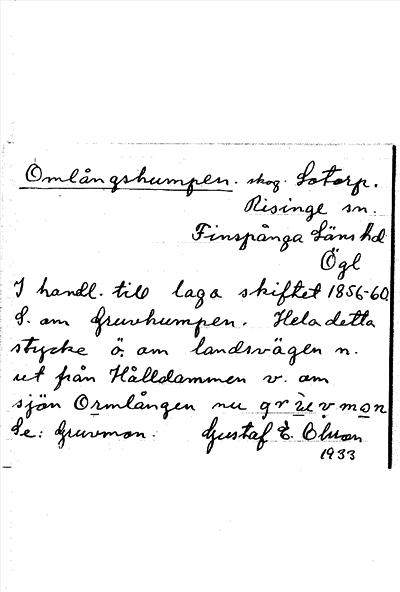 Omlångshumpen. skog. Lotorp.
Risinge sn.
Finspånga Läns hd
Ögl
I handl. till laga skiftet 1856-60.
S. om Gruvhumpen. Hela detta
stycke ö. om landsvägen n.
ut från Hålldammen v. om
sjön Ormlången nu gruvmon
Se: Gruvmon. Gustaf E. Olson
1933